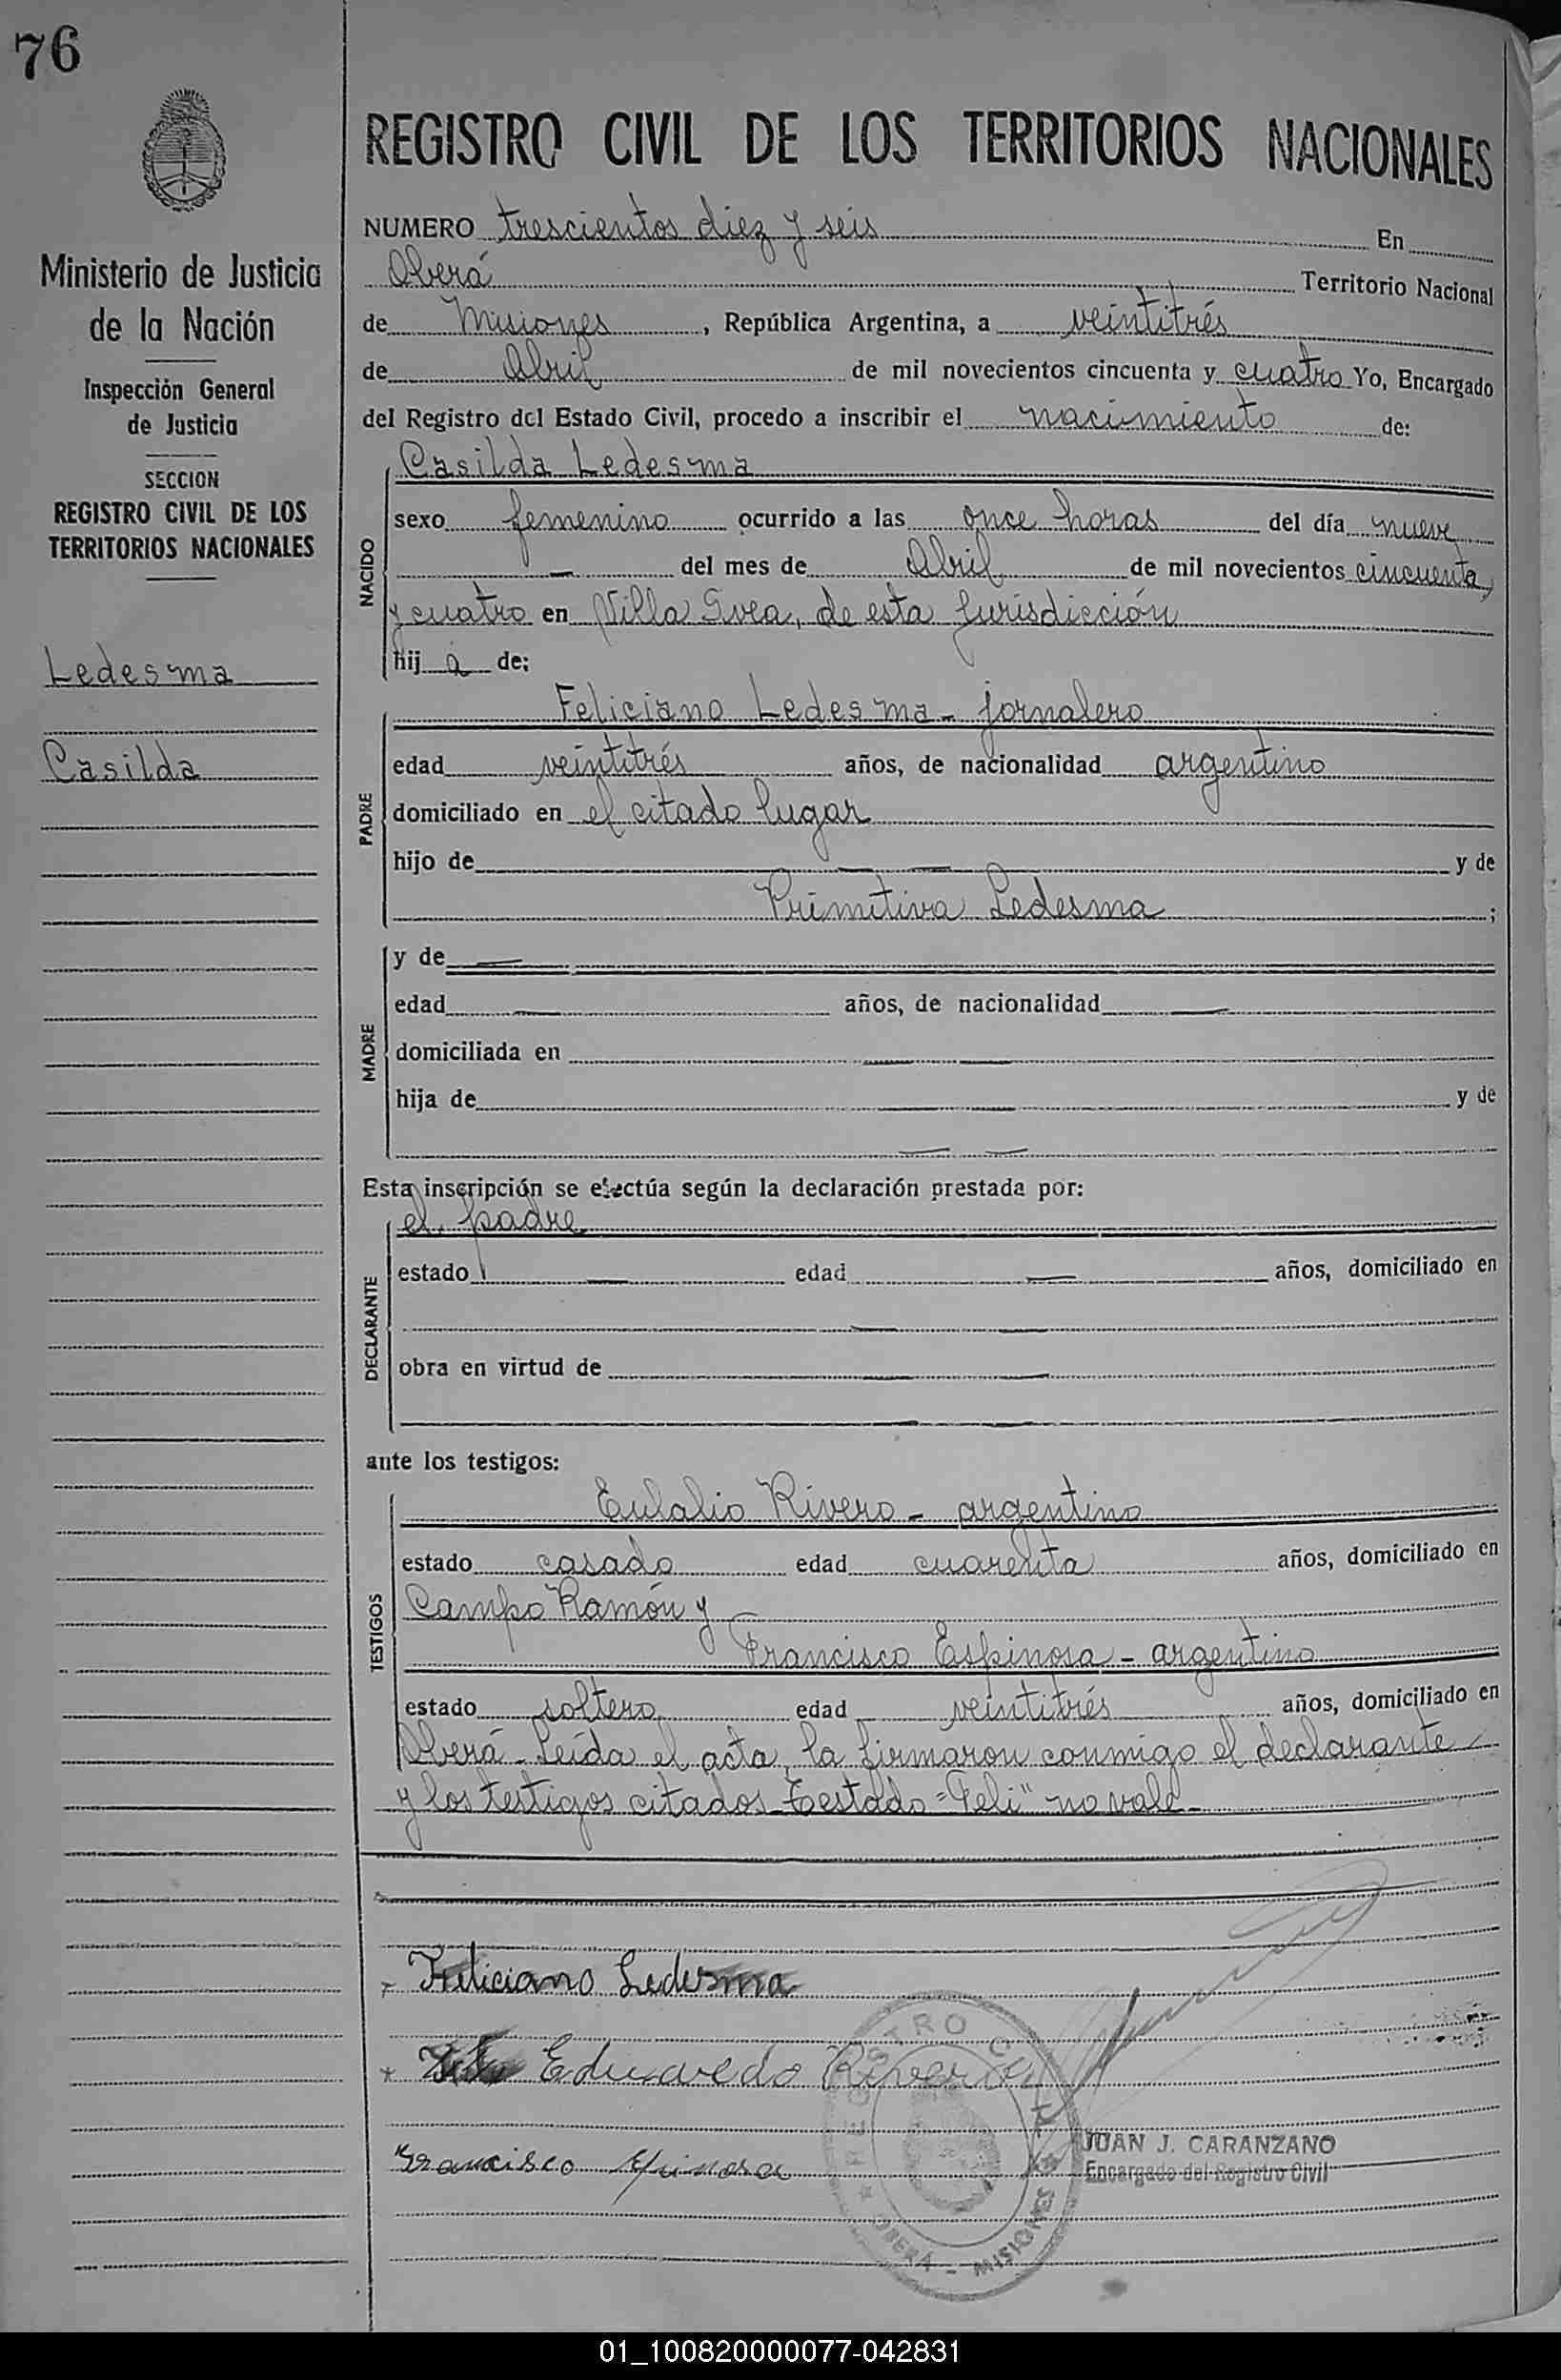 76
Ministerio de Justicia
de la Nación
Inspección General
de Justicia
SECCION
REGISTRO CIVIL DE LOS
TERRITORIOS NACIONALES
Ledesma
Casilda
REGISTRO CIVIL DE LOS TERRITORIOS NACIONALES
NUMERO trescientos diez y seis En
Oberá Territorio Nacional
de Misiones, República Argentina, a veintitrés
de Abril de mil novecientos cincuenta y cuatro Yo, Encargado
del Registro del Estado Civil, procedo a inscribir el nacimiento de:
NACIDO
Casilda Ledesma
sexo femenino ocurrido a las once horas del día nueve
— del mes de Abril de mil novecientos cincuenta
y cuatro en Villa Svea, de esta Jurisdicción
hij a de;
PADRE
Feliciano Ledesma - jornalero
edad veintitrés años, de nacionalidad argentino
domiciliado en el citado lugar
hijo de — — y de
Primitiva Ledesma ;
MADRE
y de —
edad — años, de nacionalidad —
domiciliada en — —
hija de — — y de
— —
Esta inscripción se efectúa según la declaración prestada por:
DECLARANTE
el padre
estado — edad — años, domiciliado en
— —
obra en virtud de — —
— —
ante los testigos:
TESTIGOS
Eulalio Rivero - argentino
estado casado edad cuarenta años, domiciliado en
Campo Ramón y
Francisco Espinosa - argentino
estado soltero edad veintitrés años, domiciliado en
Oberá - Leída el acta, la firmaron conmigo el declarante
y los testigos citados - Testado = "Feli" no vale -
Feliciano Ledesma
Eduardo Rivero
Francisco Espinosa
REGISTRO CIVIL
OBERÁ - MISIONES
JUAN J. CARANZANO
Encargado del Registro Civil
01_100820000077-042831